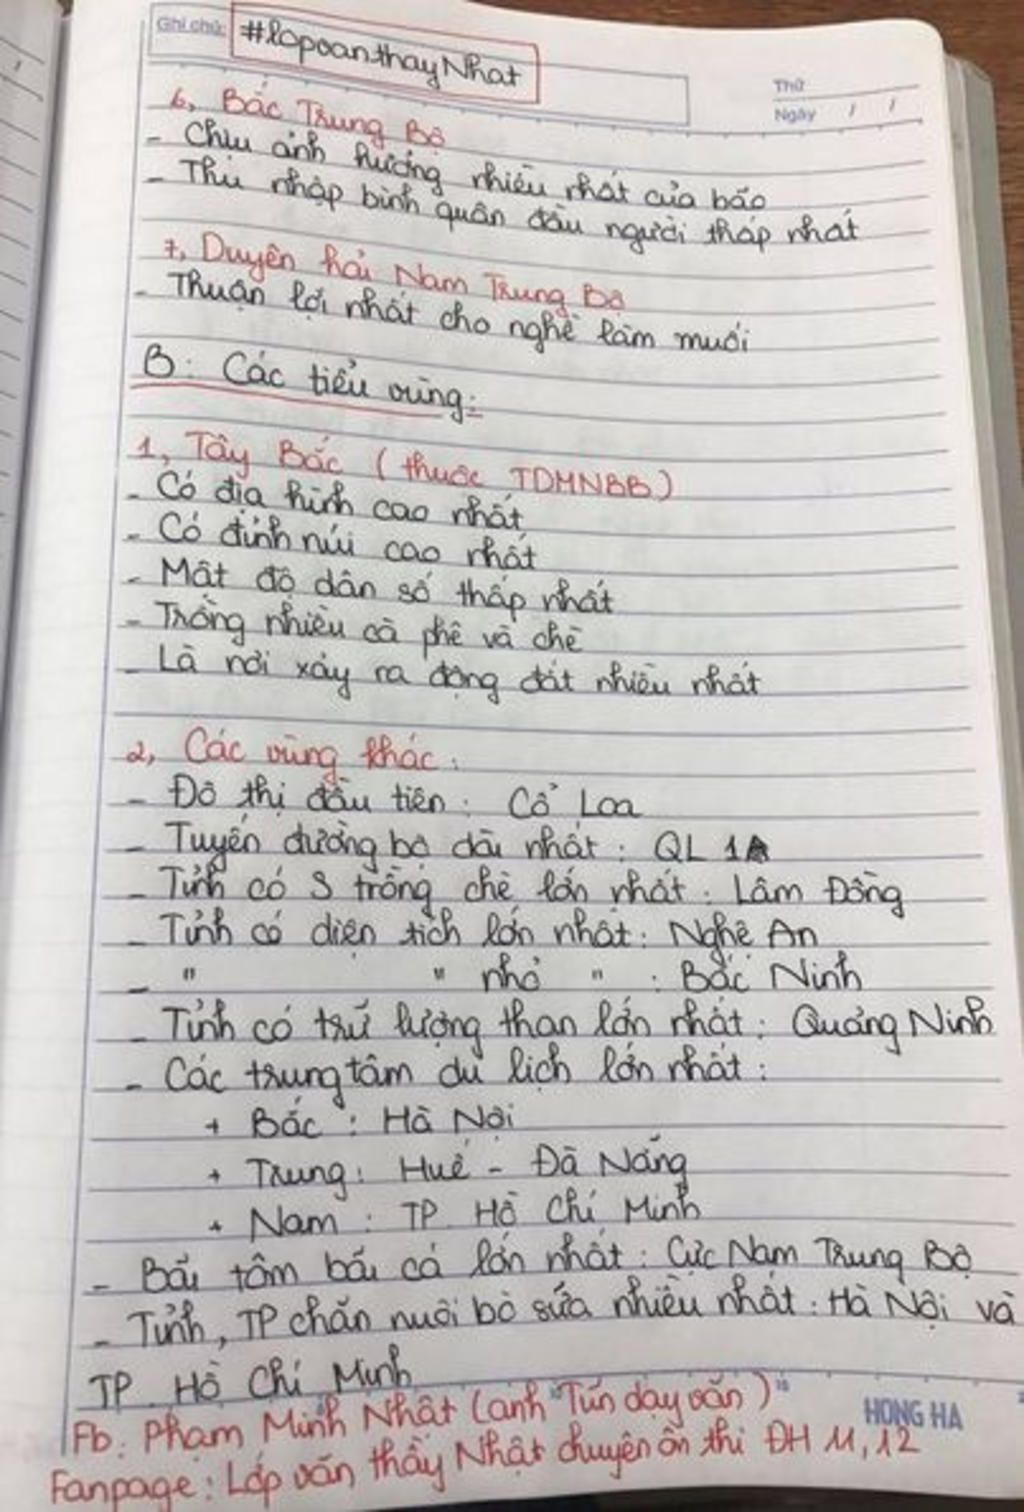 Ghi chú: #lopoanthayNhat
Thứ
Ngày / /
6, Bắc Trung Bộ
- Chịu ảnh hưởng nhiều nhất của bão
- Thu nhập bình quân đầu người thấp nhất
7, Duyên hải Nam Trung Bộ
- Thuận lợi nhất cho nghề làm muối
B: Các tiểu vùng:
1, Tây Bắc (thuộc TDMNBB)
- Có địa hình cao nhất
- Có đỉnh núi cao nhất
- Mật độ dân số thấp nhất
- Trồng nhiều cà phê và chè
- Là nơi xảy ra động đất nhiều nhất
2, Các vùng khác:
- Đô thị đầu tiên: Cổ Loa
- Tuyến đường bộ dài nhất: QL 1A
- Tỉnh có S trồng chè lớn nhất: Lâm Đồng
- Tỉnh có diện tích lớn nhất: Nghệ An
- " " nhỏ " : Bắc Ninh
- Tỉnh có trữ lượng than lớn nhất: Quảng Ninh
- Các trung tâm du lịch lớn nhất:
+ Bắc : Hà Nội
+ Trung: Huế - Đà Nẵng
+ Nam : TP. Hồ Chí Minh
- Bãi tôm bãi cá lớn nhất: Cực Nam Trung Bộ
- Tỉnh, TP chăn nuôi bò sữa nhiều nhất: Hà Nội và
TP. Hồ Chí Minh
HONG HA
Fb: Phạm Minh Nhật (anh Tún dạy văn)
Fanpage: Lớp văn thầy Nhật chuyên ôn thi ĐH 11, 12